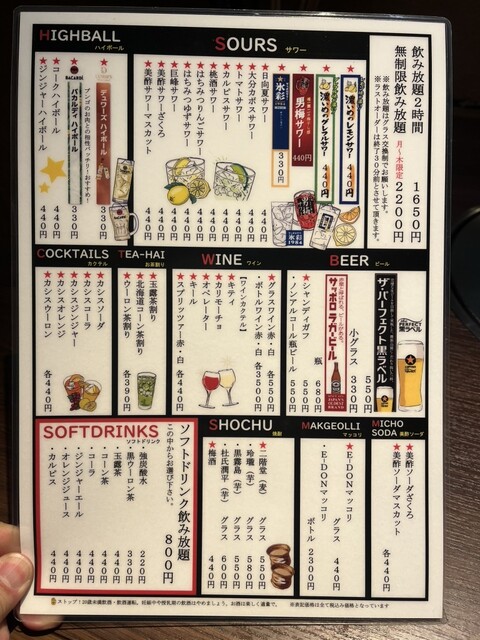 HIGHBALL
ハイボール
デュワーズ ハイボール
330円
ブンゴのお肉との相性バッチリ！おすすめ！
BACARDI
バカルディ ハイボール
440円
コークハイボール 440円
ジンジャーハイボール 440円
SOURS
サワー
濃いめのレモンサワー
440円
440円
男梅サワー
440円
氷彩
330円
★日向夏サワー 440円
★大分カボスサワー 440円
★トマトサワー 440円
★カルピスサワー 440円
★桃酒サワー 440円
★はちみつりんごサワー 440円
★はちみつゆずサワー 440円
★巨峰サワー 440円
★美酢サワーざくろ 440円
★美酢サワーマスカット 440円
氷彩
1984
飲み放題2時間 1650円
無制限飲み放題 月〜木限定 2200円
※飲み放題はグラス交換制でお願いします。
※ラストオーダーは終了30分前とさせて頂きます。
COCKTAILS
カクテル
★カシスソーダ
★カシスコーラ
★カシスジンジャー
★カシスオレンジ
★カシスウーロン
各440円
TEA-HAI
お茶割り
★玉露茶割り 440円
★北海道コーン茶割り 440円
・ウーロン茶割り 390円
WINE
ワイン
★グラスワイン赤・白 各550円
・ボトルワイン赤・白 各3500円
【ワインカクテル】
★キティ
★カリモーチョ
★オペレーター
★キール
★スプリッツァー赤・白
各440円
BEER
ビール
ザ・パーフェクト黒ラベル
PERFECT
黒ラベル
550円
小グラス 330円
赤星と呼ばれる、ビールがある。
サッポロラガービール
JAPAN'S OLDEST BRAND
瓶 680円
★シャンディガフ 550円
・ノンアルコール瓶ビール 550円
SOFTDRINKS
ソフトドリンク
ソフトドリンク飲み放題
この中からお選び下さい。
800円
・強炭酸水 200円
・黒ウーロン茶 330円
・玉露茶 440円
・コーン茶 440円
・コーラ 440円
・ジンジャーエール 440円
・オレンジジュース 440円
・カルピス 440円
SHOCHU
焼酎
★二階堂（麦） グラス 550円
・玲瓏（芋） グラス 600円
・黒霧島（芋） グラス 580円
・杜氏潤平（芋） グラス 640円
★梅酒 440円
MAKGEOLLI
マッコリ
★E-DONマッコリ グラス 440円
・E-DONマッコリ ボトル 2300円
MICHO SODA
美酢ソーダ
★美酢ソーダざくろ
★美酢ソーダマスカット
各440円
ストップ！20歳未満飲酒・飲酒運転。妊娠中や授乳期の飲酒はやめましょう。お酒は楽しく適量で。
※表記価格は全て税込み価格となっています